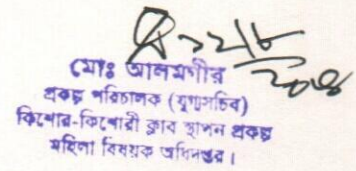 মোঃ আলমগীর
প্রকল্প পরিচালক (যুগ্মসচিব)
কিশোর-কিশোরী ক্লাব স্থাপন প্রকল্প
মহিলা বিষয়ক অধিদপ্তর।